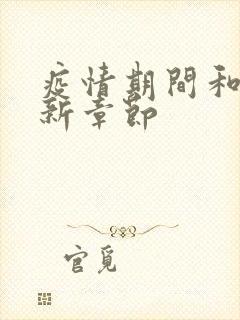 疫情期間和
新章節
官覓